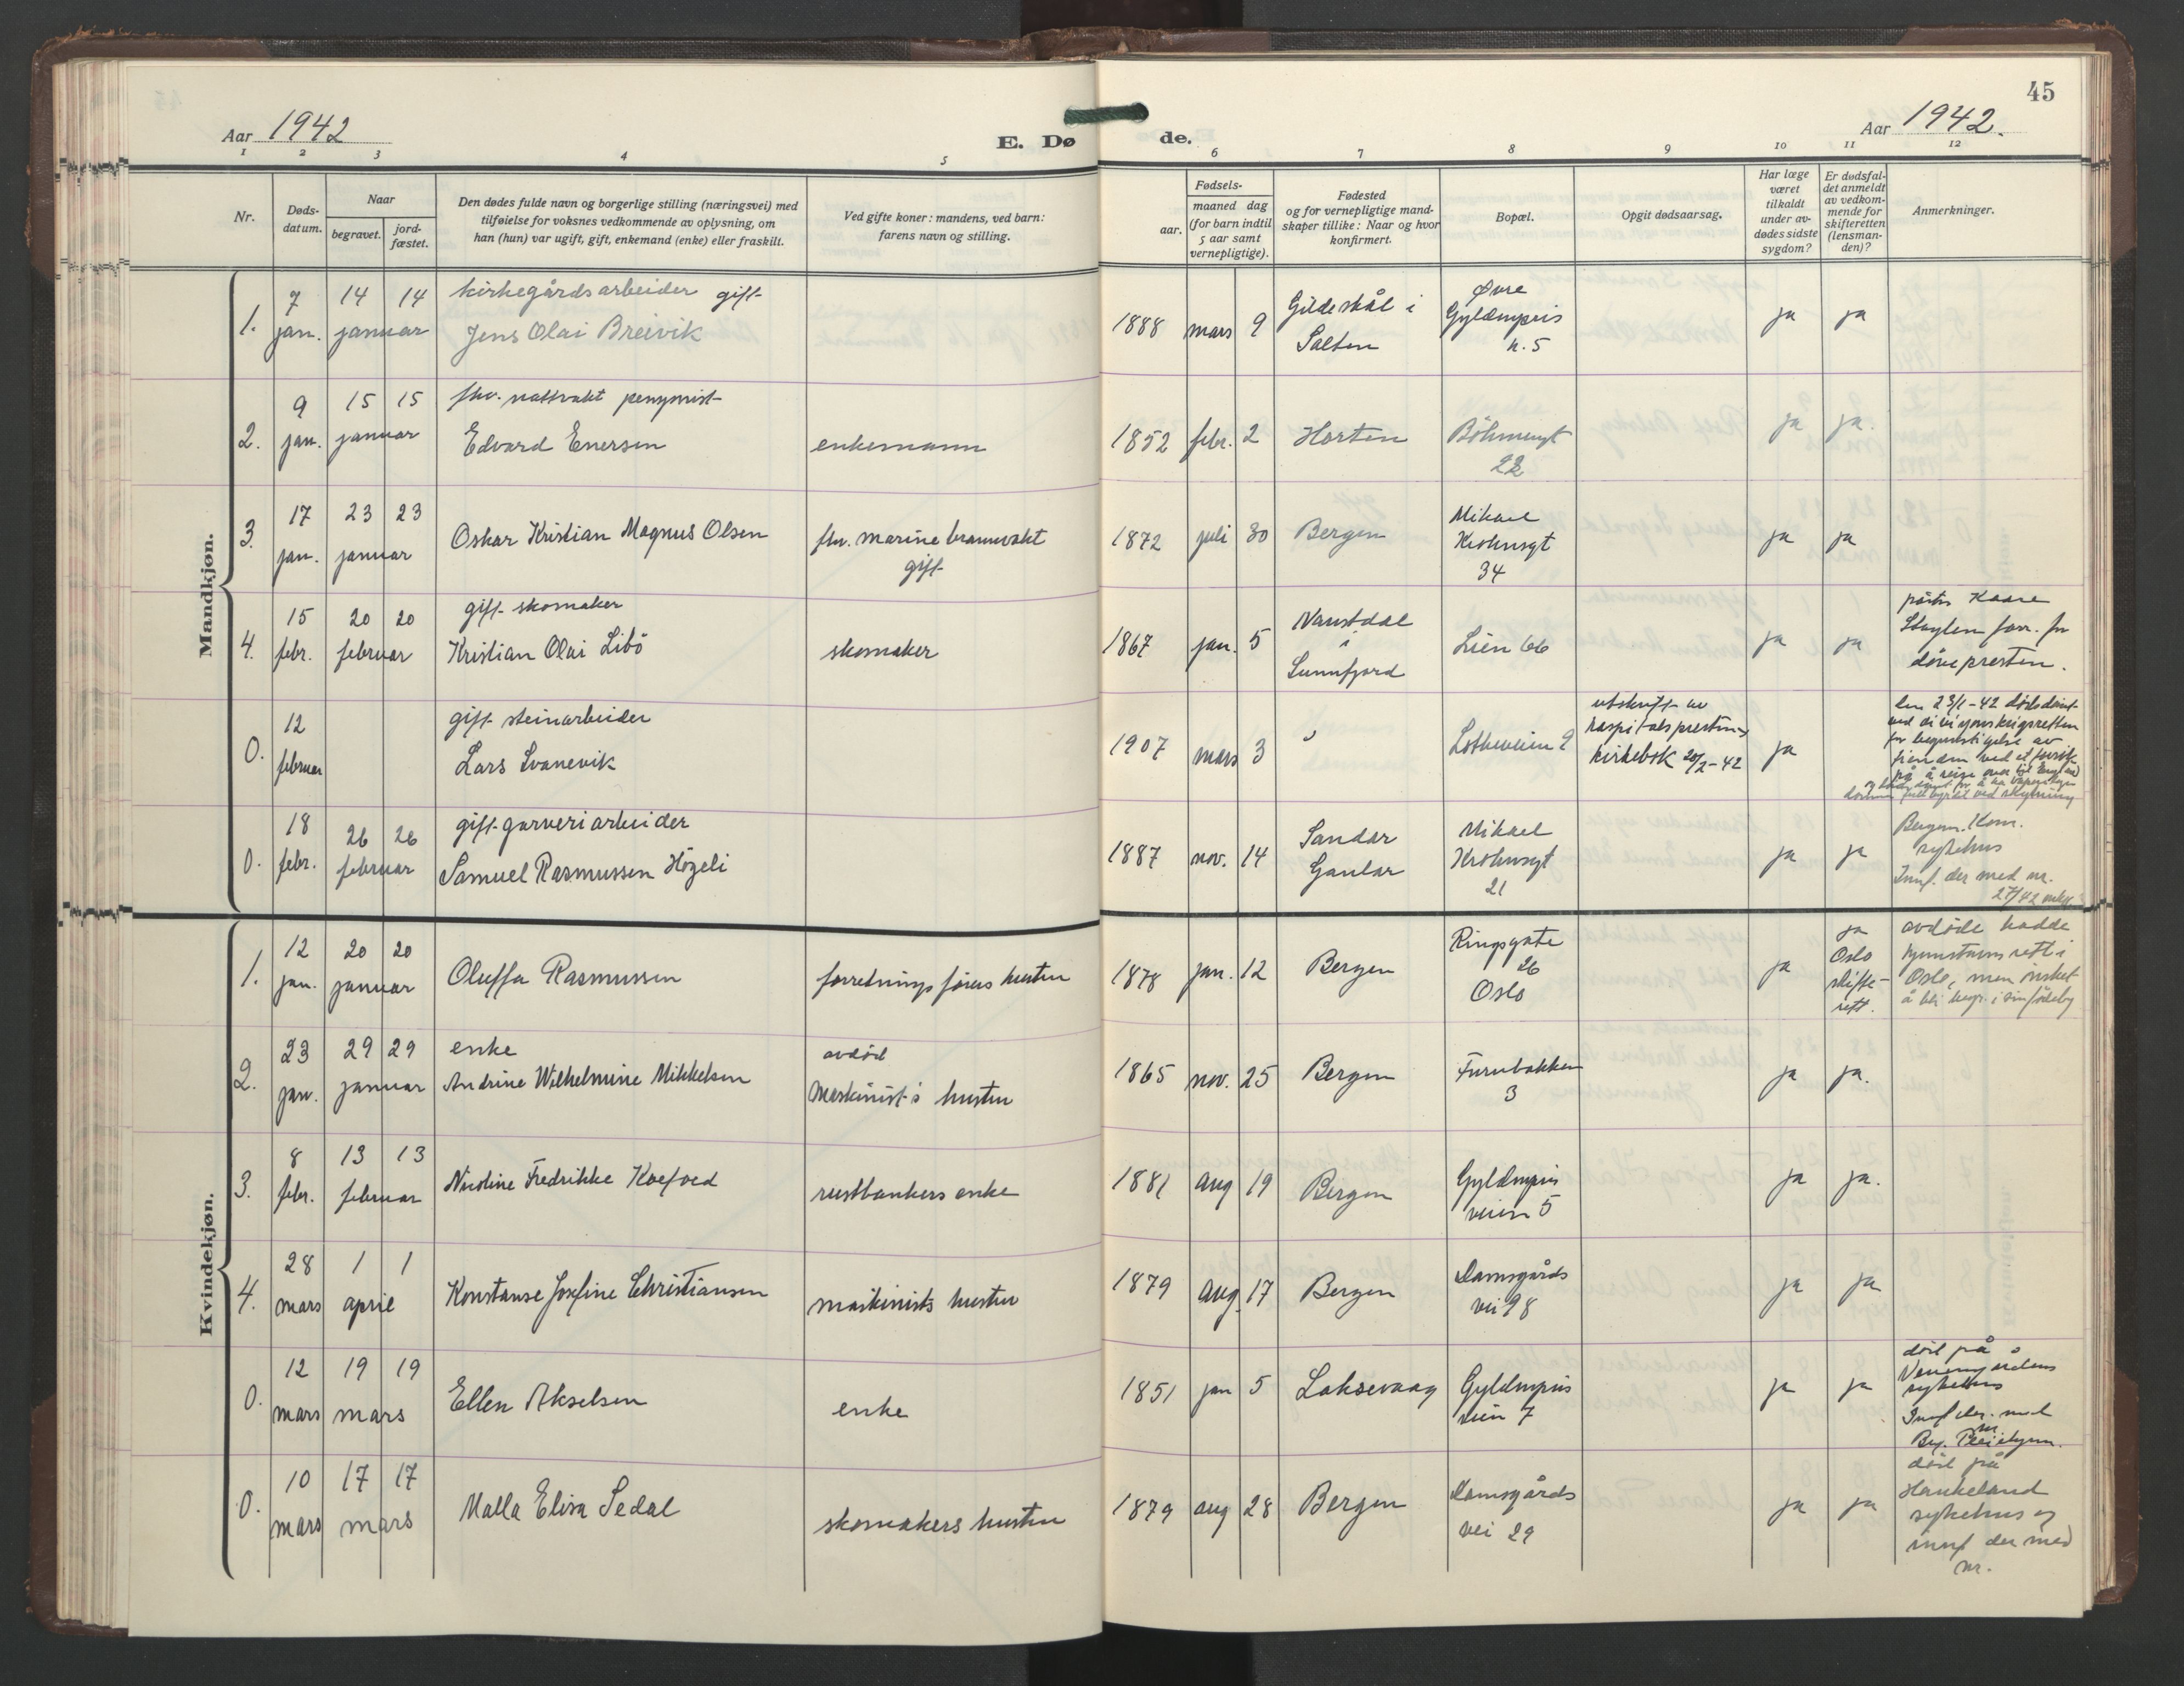 Aar 1942
E. Dø
1 2 3 4 5
Nr.
Døds-
datum.
Naar
begravet.
jord-
fæstet.
Den dødes fulde navn og borgerlige stilling (næringsvei) med
tilføielse for voksnes vedkommende av oplysning, om
han (hun) var ugift, gift, enkemand (enke) eller fraskilt.
Ved gifte koner: mandens, ved barn:
farens navn og stilling.
Mandkjøn.
1.
7
jan.
14 14
januar
kirkegårdsarbeider gift
Jens Olai Breivik
2.
9
jan.
15 15
januar
fhv. nattvakt
Edvard Enersen
enkemann
3.
17
jan.
23 23
januar
Oskar Kristian Magnus Olsen
fhv. marine brannvakt
gift
4.
15
febr.
20 20
februar
gift skomaker
Kristian Olai Libö
skomaker
0.
12
februar
gift steinarbeider
Lars Svanevik
0.
18
febr.
26 26
februar
gift garveriarbeider
Samuel Rasmussen Högeli
Kvindekjøn.
1.
12
jan.
20 20
januar
Oluffa Rasmussen
forretningsförers hustru
2.
23
jan.
29 29
januar
enke
Andrine Wilhelmine Mikkelsen
avdöd
Maskinist's hustru
3.
8
febr.
13 13
februar
Nicoline Fredrikke Koefoed
rustbankers enke
4.
28
mars
1 1
april
Konstanse Josefine Christiansen
maskinists hustru
0.
12
mars
19 19
mars
Ellen Akselsen
enke
0.
10
mars
17 17
mars
Malla Elisa Sedal
skomakers hustru
45
de.
Aar 1942.
6 7 8 9 10 11 12
aar.
Fødsels-
maaned dag
(for barn indtil
5 aar samt
vernepligtige).
Fødested
og for vernepligtige mand-
skaper tillike: Naar og hvor
konfirmert.
Bopæl.
Opgit dødsaarsag.
Har læge
været
tilkaldt
under av-
dødes sidste
sygdom?
Er dødsfal-
det anmeldt
av vedkom-
mende for
skifteretten
(lensman-
den)?
Anmerkninger.
1888 mars 9
Gildeskål i
Salten
Øvre
Gyldenpris
n. 5
ja ja
1852 febr. 2
Horten
Böhmergt
22
ja ja.
1872 juli 30
Bergen
Mikael
Krohnsgt
34
ja ja
1867 jan. 5
Naustdal
i
Sunnfjord
Lien 66
ja ja
Kaare
for
dövepresten.
1907 mars 3
utskrift av
hospitalsprestens
kirkebok 20/2-42
ja
den 23/1-42 dödsdömt
ved divisjonskrigsretten
for begunstigelse av
fienden ved et forsök
på å reise over til England
dommen fullbyrdet ved skytning
1887 nov. 14
Sandar
Gaular
Mikael
Krohnsgt
21
ja ja
Bergen Kom.
sykehus
Innf. der med nr.
27/42
1878 jan. 12
Bergen
Ringsgate
26
Oslo
ja
ja
Oslo
skifte-
rett.
avdöde hadde
hjemstavnsrett i
Oslo, men önsket
å bli begr. i sin födeby
1865 nov. 25
Bergen
Furubakken
3
ja ja.
1881 aug 19
Bergen
Gyldenpris
veien 5
ja ja.
1879 aug. 17
Bergen
Damsgårds
vei 98
ja ja
1851 jan 5
Laksevaag
Gyldenpris
veien 7
ja ja
död på
sykehus
Innf der. med
nr
1879 aug 28
Bergen
Damsgårds
vei 29
ja ja
död på
Haukeland
sykehus og
innf der med
nr.